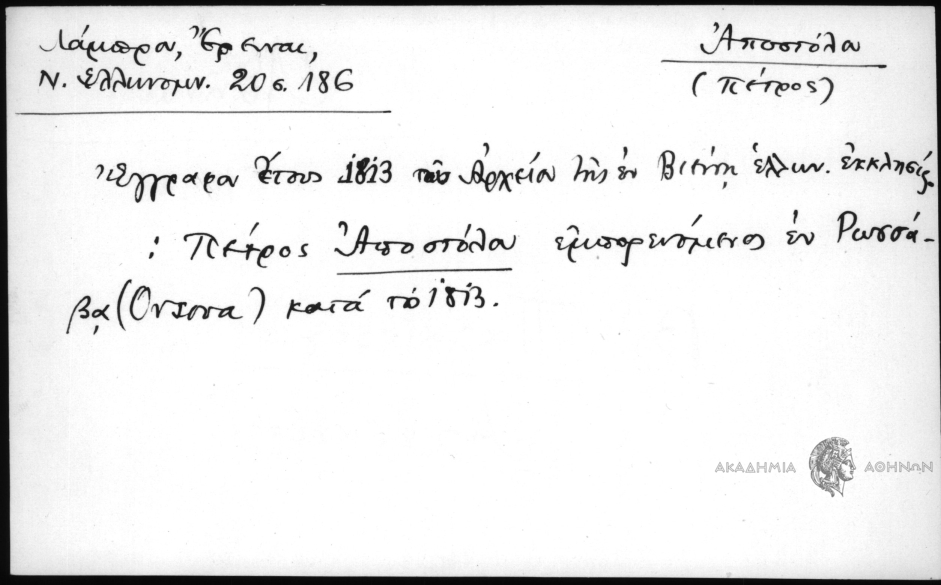 Λάμπρου, Ἔρευναι,
Ν. Ἑλληνομν. 20 σ. 186
Ἀποστόλου
(Πέτρος)
Ἔγγραφον ἔτους 1813 τοῦ Ἀρχείου τῆς ἐν Βιέννῃ ἑλλην. ἐκκλησίας
: Πέτρος Ἀποστόλου ἐμπορευόμενος ἐν Ρωσσά-
βᾳ (Ουρσουα) κατά τὸ 1813.
ΑΚΑΔΗΜΙΑ ΑΘΗΝΩΝ